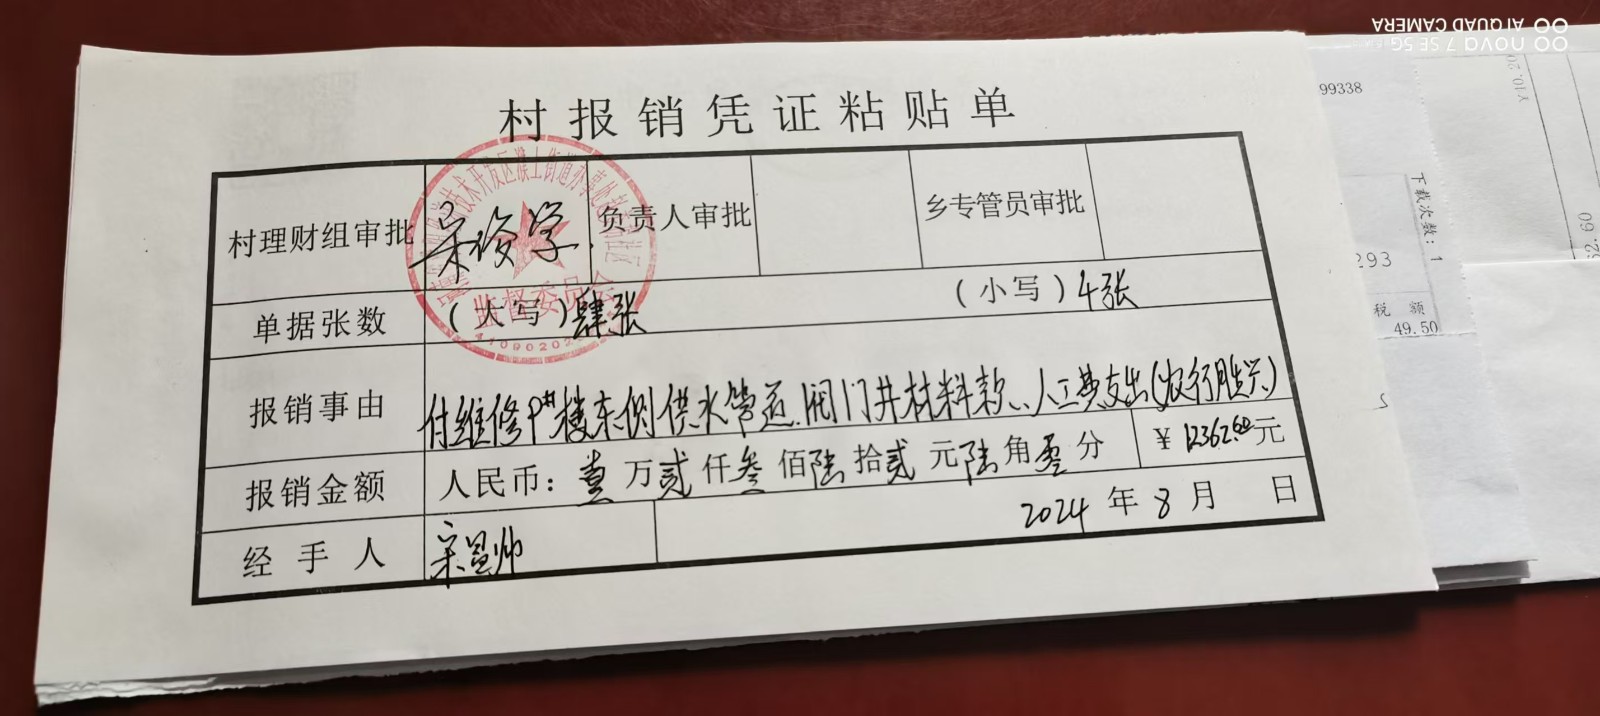 AI QUAD CAMERA
nova 7 SE 5G
村报销凭证粘贴单
村理财组审批 宋俊学 负责人审批 乡专管员审批
技术开发区濮上街道办事处
监督委员会
单据张数 （大写）肆张 （小写）4张
报销事由 付维修P#楼东侧供水管道、阀门井材料款、人工费支出（农行胜兴）
报销金额 人民币：壹万贰仟叁佰陆拾贰元陆角零分 ￥12362.60元
经手人 宋显帅 2024年8月 日
99338
下载次数：1
293
税 额
49.50